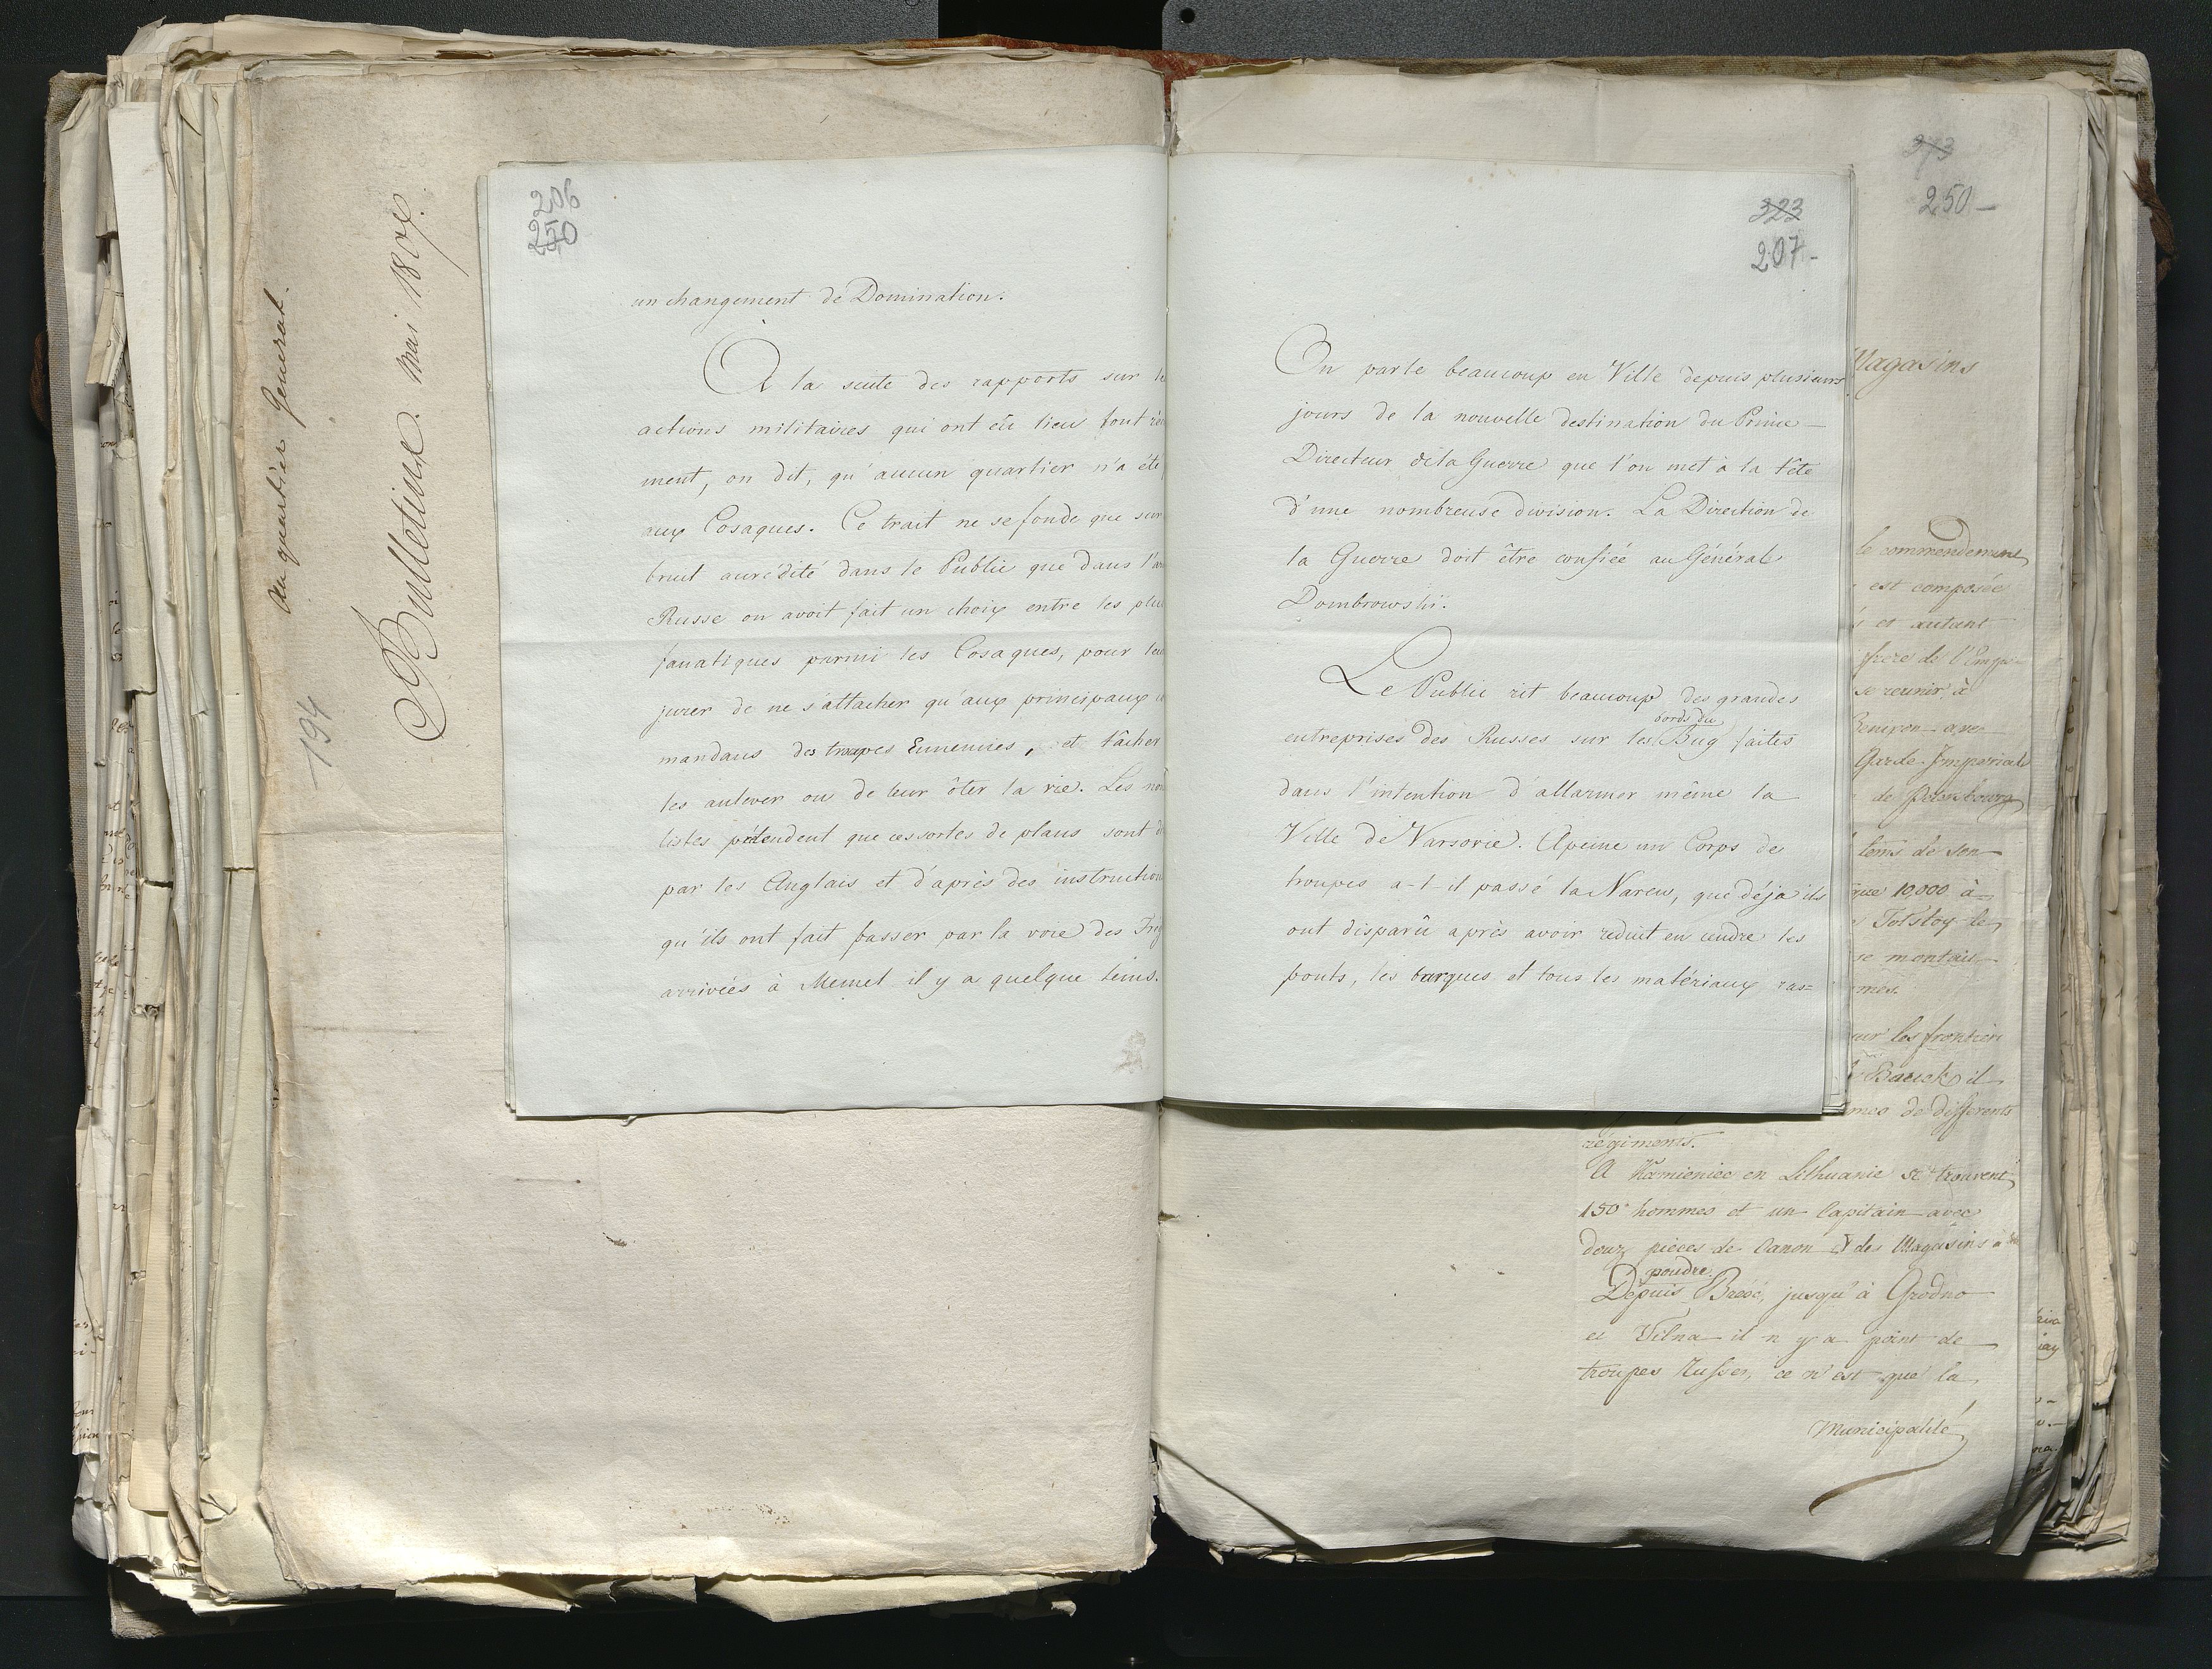 Au quartier General.
Bulletins. mai 1807.
194
206
250
un changement de Domination.
A la suite des rapports sur le
actions militaires qui ont eü lieu tout ré
ment, on dit, qu'aucun quartier n'a été
aux Cosaques. Ce trait ne se fonde que sur
bruit accrédité dans le Public que dans l'ar
Russe on avoit fait un choix entre les plu
fanatiques parmi les Cosaques, pour leu
jurer de ne s'attacher qu'aux principaux
mandans des troupes Ennemies, et tâcher
les enlever ou de leur ôter la vie. Les no
listes prétendent que ces sortes de plans sont d
par les Anglais et d'après des instruction
qu'ils ont fait passer par la voie des Frég
arrivées à Memel il y a quelque tems.
323
207-
On parle beaucoup en Ville depuis plusieurs
jours de la nouvelle destination du Prince
Directeur de la Guerre que l'on met à la tête
d'une nombreuse division. La Direction de
la Guerre doit être confiée au Général
Dombrowski.
Le Public rit beaucoup des grandes
bords du
entreprises des Russes sur les Bug faites
dans l'intention d'allarmer même la
Ville de Varsovie. Apeine un Corps de
troupes a-t-il passé la Narew, que déja ils
ont disparû après avoir reduit en cendre les
ponts, les barques et tous les matériaux ras=
373
250-
Magasins
le commendement
est composée
et autant
frere de l'Empe-
se reunir à
Garde Imperial
de Petersbourg
tems de son
que 10,000 à
Tolstoy le
se montait
mes.
sur les frontiere
il
mes de differents
régiments.
A Kamieniec en Lithuanie se trouvent
150 hommes et un Capitain avec
douz pièces de Canon et des Magasins à
poudre.
Depuis Bresc, jusqu'à Grodno
et Vilna il n'y a point de
troupes Russes, ce n'est que la
Municipalité